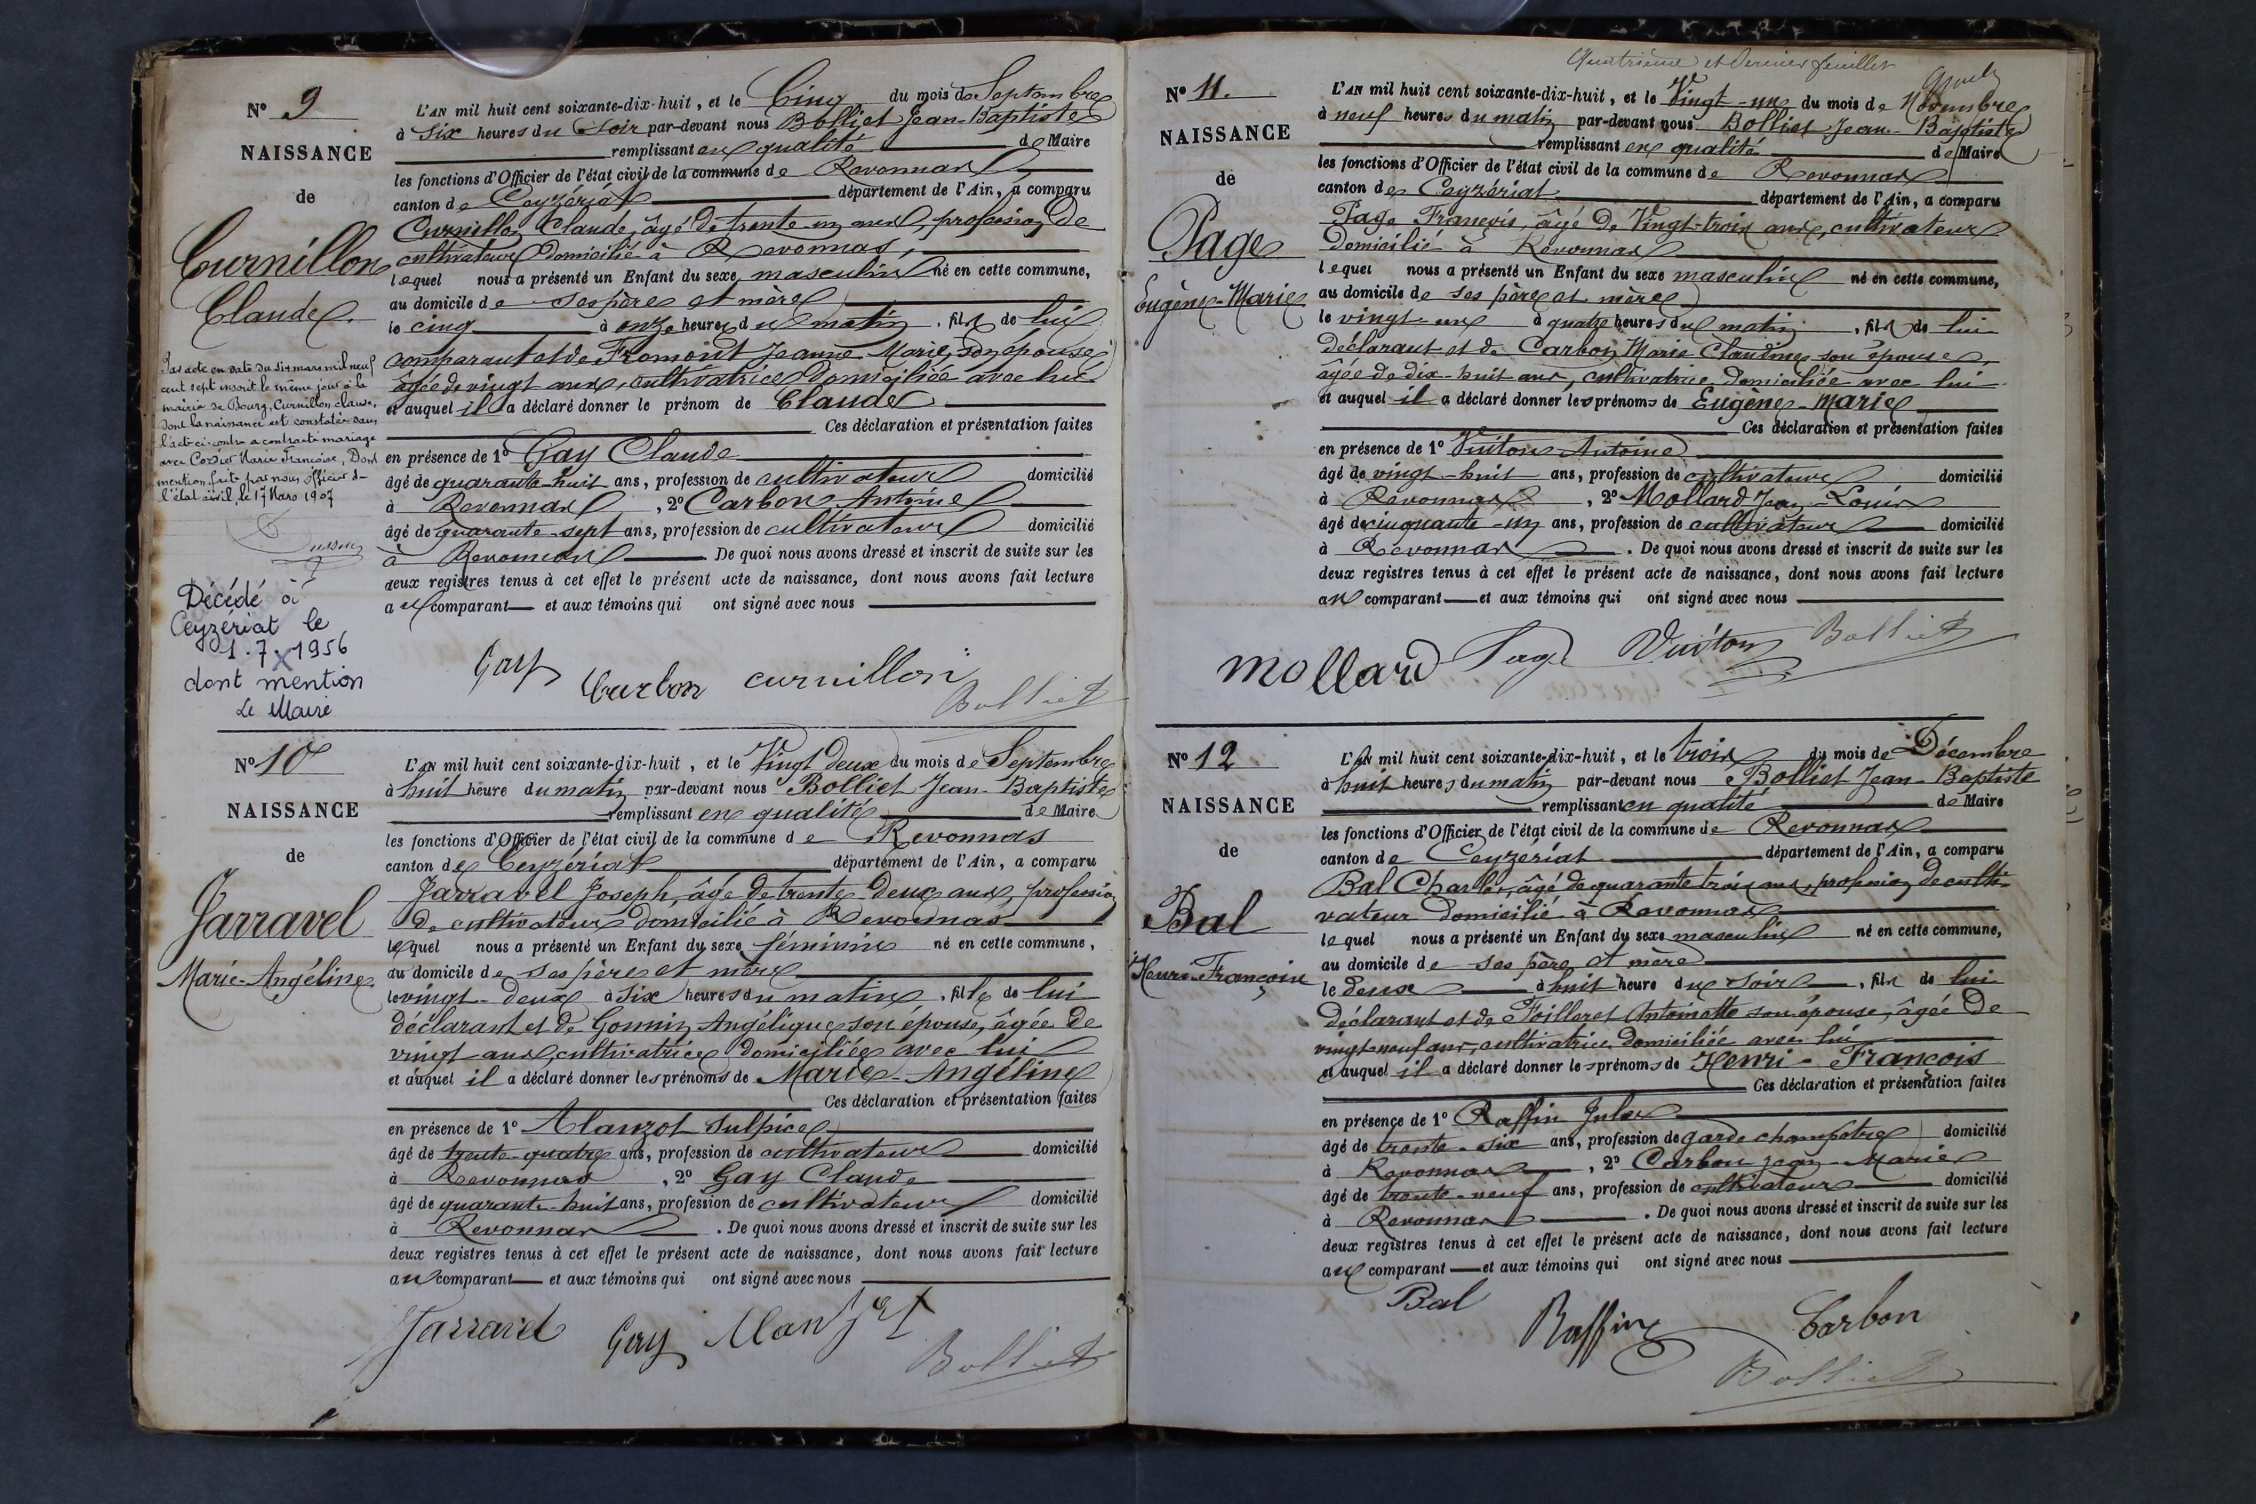 N° 9
NAISSANCE
de
Curnillon
Claude
Par acte en date du six mars mil neuf
cent sept inscrit le même jour à la
mairie de Bourg, Curnillon Claude,
dont la naissance est constatée dans
l'acte ci-contre a contracté mariage
avec Cordier Marie Françoise, Dont
mention faite par nous officier de
l'état civil, le 17 Mars 1907
Décédé à
Ceyzériat le
1.7.1956
dont mention
Le Maire
L'AN mil huit cent soixante-dix-huit, et le Cinq du mois de Septembre
à six heures du soir par-devant nous Bolliet Jean-Baptiste
remplissant en qualité de Maire
les fonctions d'Officier de l'état civil de la commune de Revonnas
canton de Ceyzériat département de l'Ain, a comparu
Curnillon Claude, âgé de trente un ans, profession de
cultivateur domicilié à Revonnas,
lequel nous a présenté un Enfant du sexe masculin né en cette commune,
au domicile de ses père et mère
le cinq à onze heures du matin, fils de lui
comparant et de Fromont Jeanne Marie, son épouse
âgée de vingt ans, cultivatrice domiciliée avec lui
et auquel il a déclaré donner le prénom de Claude
Ces déclaration et présentation faites
en présence de 1° Gay Claude
âgé de quarante-huit ans, profession de cultivateur domicilié
à Revonnas, 2° Carbon Antoine
âgé de quarante-sept ans, profession de cultivateur domicilié
à Revonnas. De quoi nous avons dressé et inscrit de suite sur les
deux registres tenus à cet effet le présent acte de naissance, dont nous avons fait lecture
au comparant et aux témoins qui ont signé avec nous
Gay Carbon curnillon Bolliet
N° 10
NAISSANCE
de
Jarravel
Marie-Angéline
L'AN mil huit cent soixante-dix-huit, et le Vingt deux du mois de Septembre
à huit heure du matin par-devant nous Bolliet Jean-Baptiste
remplissant en qualité de Maire
les fonctions d'Officier de l'état civil de la commune de Revonnas
canton de Ceyzériat département de l'Ain, a comparu
Jarravel Joseph, âgé de trente-deux ans, profession
de cultivateur domicilié à Revonnas
lequel nous a présenté un Enfant du sexe féminin né en cette commune,
au domicile de ses père et mère
le vingt-deux à six heures du matin, fille de lui
déclarant et de Gonnin Angélique son épouse, âgée de
vingt ans, cultivatrice domiciliée avec lui
et auquel il a déclaré donner les prénoms de Marie-Angéline
Ces déclaration et présentation faites
en présence de 1° Alanzot Sulpice
âgé de trente-quatre ans, profession de cultivateur domicilié
à Revonnas, 2° Gay Claude
âgé de quarante-huit ans, profession de cultivateur domicilié
à Revonnas. De quoi nous avons dressé et inscrit de suite sur les
deux registres tenus à cet effet le présent acte de naissance, dont nous avons fait lecture
au comparant et aux témoins qui ont signé avec nous
Jarravel Gay Bolliet
Quatrième et dernier feuillet
N° 11.
NAISSANCE
de
Page
Eugène-Marie
L'AN mil huit cent soixante-dix-huit, et le Vingt-un du mois de Novembre
à neuf heures du matin par-devant nous Bolliet Jean-Baptiste
remplissant en qualité de Maire
les fonctions d'Officier de l'état civil de la commune de Revonnas
canton de Ceyzériat département de l'Ain, a comparu
Page François, âgé de Vingt-trois ans, cultivateur
domicilié à Revonnas
lequel nous a présenté un Enfant du sexe masculin né en cette commune,
au domicile de ses père et mère
le vingt-un à quatre heures du matin, fils de lui
déclarant et de Carbon Marie Claudine son épouse,
âgée de dix-huit ans, cultivatrice domiciliée avec lui
et auquel il a déclaré donner les prénoms de Eugène-Marie
Ces déclaration et présentation faites
en présence de 1° Vuiton Antoine
âgé de vingt-huit ans, profession de cultivateur domicilié
à Revonnas, 2° Mollard Jean-Louis
âgé de cinquante-un ans, profession de cultivateur domicilié
à Revonnas. De quoi nous avons dressé et inscrit de suite sur les
deux registres tenus à cet effet le présent acte de naissance, dont nous avons fait lecture
au comparant et aux témoins qui ont signé avec nous
Mollard Page Vuiton Bolliet
N° 12
NAISSANCE
de
Bal
Henri-François
L'AN mil huit cent soixante-dix-huit, et le trois du mois de Décembre
à huit heures du matin par-devant nous Bolliet Jean-Baptiste
remplissant en qualité de Maire
les fonctions d'Officier de l'état civil de la commune de Revonnas
canton de Ceyzériat département de l'Ain, a comparu
Bal Charles, âgé de quarante trois ans, profession de culti-
vateur domicilié à Revonnas
lequel nous a présenté un Enfant du sexe masculin né en cette commune,
au domicile de ses père et mère
le deux à huit heure du soir, fils de lui
déclarant et de Foilleret Antoinette son épouse, âgée de
vingt-neuf ans, cultivatrice domiciliée avec lui
et auquel il a déclaré donner les prénoms de Henri-François
Ces déclaration et présentation faites
en présence de 1° Raffin Jules
âgé de trente-six ans, profession de garde champêtre domicilié
à Revonnas, 2° Carbon Jean-Marie
âgé de trente-neuf ans, profession de cultivateur domicilié
à Revonnas. De quoi nous avons dressé et inscrit de suite sur les
deux registres tenus à cet effet le présent acte de naissance, dont nous avons fait lecture
au comparant et aux témoins qui ont signé avec nous
Bal Raffin Carbon
Bolliet